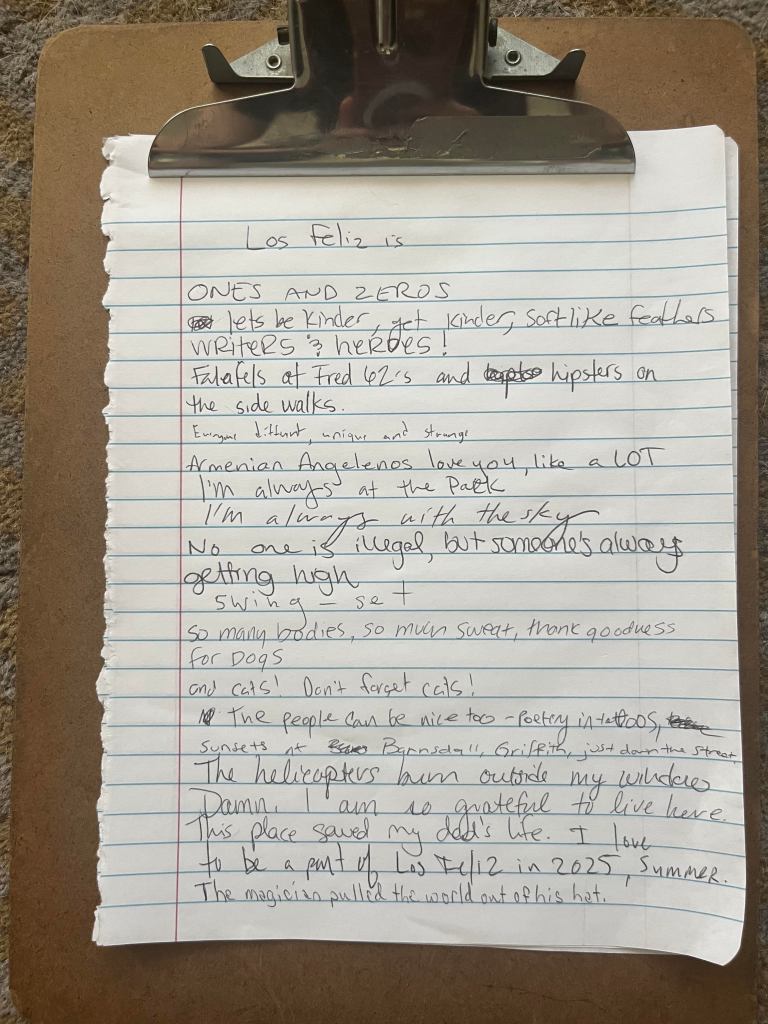 Los Feliz is
ONES AND ZEROS
lets be kinder, get kinder, soft like feathers
WRITERS & heROes!
Falafels at Fred 62's and hipsters on
the side walks.
Everyone diffunt, unique and strange
Armenian Angelenos love you, like a LOT
I'm always at the Park
I'm always with the sky
No one is illegal, but someone's always
getting high
swing - set
so many bodies, so much sweat, thank goodness
for DOGS
and cats! Don't forget cats!
The people can be nice too - Poetry in tattoos,
sunsets at Barnsdall, Griffith, just down the street,
The helicopters hum outside my window
Damn, I am so grateful to live here.
This place saved my dad's life. I love
to be a part of Los Feliz in 2025, Summer.
The magician pulled the world out of his hat.